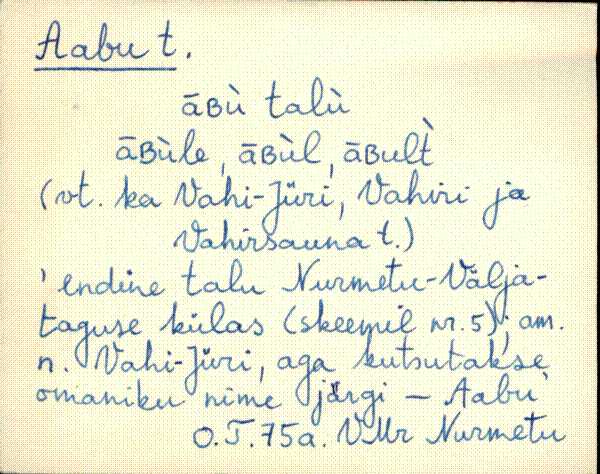 Aabu t.
āʙù talù
āʙùle, āʙùl, āʙult̀
(vt. ka Vahi-Jüri, Vahiri ja
Vahirsauna t.)
' endine talu Nurmetu-Välja-
taguse külas (skeemil nr. 5); am.
n. Vahi-Jüri, aga kutsutakse
omaniku nime järgi – Aabu'
O.T. 75a. VMr Nurmetu